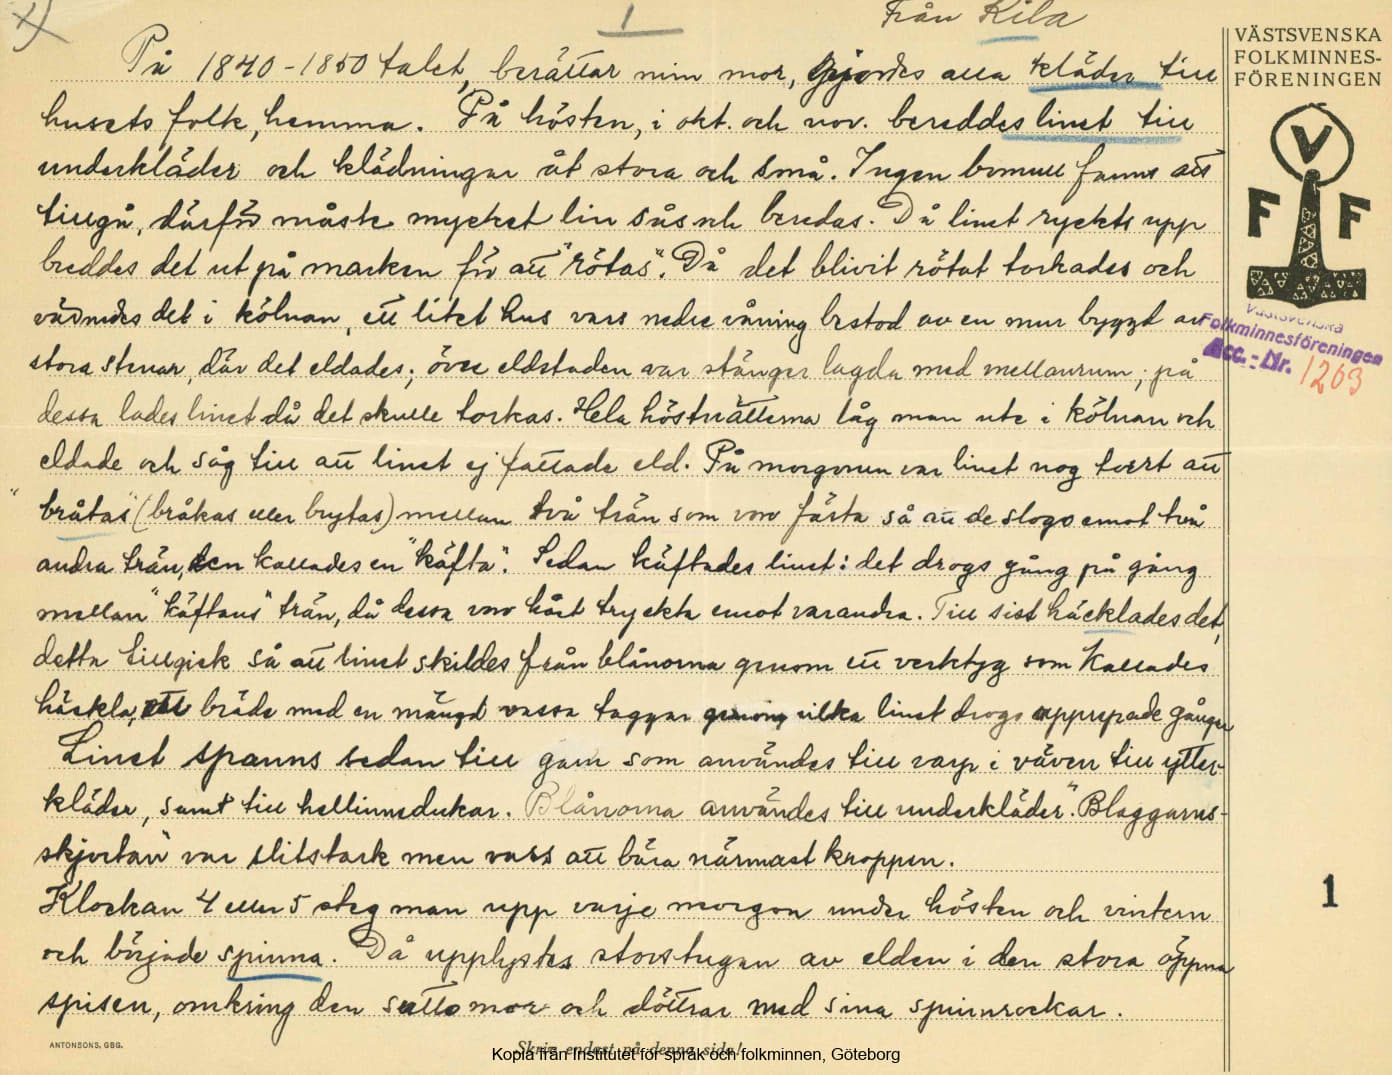 Från Kila
1
På 1840-1850 talet, berättar min mor, gjordes alla kläder till
husets folk, hemma. På hösten, i okt. och nov. bereddes linet till
underkläder och klädningar åt stora och små. Ingen bomull fanns att
tillgå, därför måste mycket lin sås och beredas. Då linet ryckts upp
breddes det ut på marken för att "rötas". Då det blivit rötat torkades och
värmdes det i kölnan, ett litet hus vars nedre våning bestod av en mur byggd av
stora stenar, där det eldades; över eldstaden var stänger lagda med mellanrum; på
dessa lades linet då det skulle torkas. Hela höstnätterna låg man ute i kölnan och
eldade och såg till att linet ej fattade eld. På morgonen var linet nog torrt att
"bråtas" (bråkas eller brytas) mellan två trän som voro fästa så att de slogo emot två
andra trän, den kallades en "käfta". Sedan käftades linet: det drogs gång på gång
mellan "käftans" trän, då dessa voro hårt tryckta emot varandra. Till sist häcklades det,
detta tillgick så att linet skildes från blånorna genom ett verktyg som kallades
häckla, ett bräde med en mängd vassa taggar genom vilka linet drogs upprepade gånger
Linet spanns sedan till garn som användes till varp i väven till ytter-
kläder, samt till hellinnedukar. Blånorna användes till underkläder. "Blaggarns-
skjortan" var slitstark men vass att bära närmast kroppen.
Klockan 4 eller 5 steg man upp varje morgon under hösten och vintern
och började spinna. Då upplystes storstugan av elden i den stora öppna
spisen, omkring den sutto mor och döttrar med sina spinnrockar.
VÄSTSVENSKA
FOLKMINNES-
FÖRENINGEN
V
F F
Västsvenska
Folkminnesföreningen
Acc.-Nr. 1263
1
ANTONSONS, GBG.
Skriv endast på denna sida!
Kopia från Institutet för språk och folkminnen, Göteborg